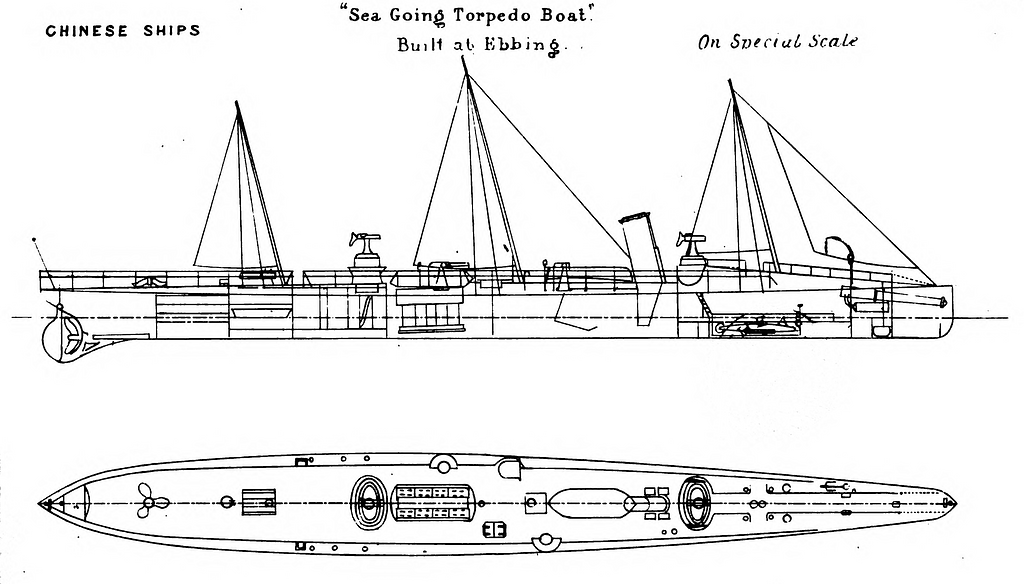 CHINESE SHIPS
"Sea Going Torpedo Boat".
Built at Ebbing.
On Special Scale